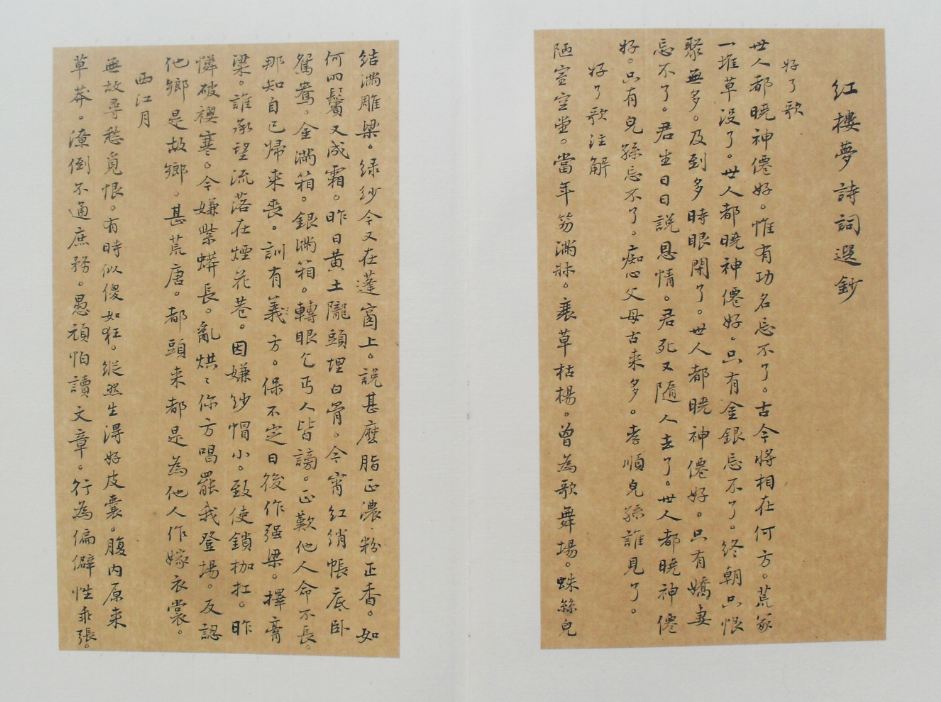 红楼夢詩詞选鈔
好了歌
世人都晓神僊好。惟有功名忘不了。古今将相在何方。荒冢
一堆草没了。世人都晓神僊好。只有金銀忘不了。终朝只恨
聚無多。及到多時眼閉了。世人都晓神僊好。只有嬌妻
忘不了。君生日日説恩情。君死又隨人去了。世人都晓神僊
好。只有兒孫忘不了。痴心父母古来多。孝順兒孫誰見了。
好了歌注解
陋室空堂。當年笏滿牀。衰草枯楊。曾為歌舞場。蛛絲兒
结滿雕梁。绿纱今又在蓬窗上。説甚麽脂正濃粉正香。如
何両鬢又成霜。昨日黄土隴頭埋白骨。今宵红绡帳底卧
鴛鴦。金滿箱。銀滿箱。轉眼乞丐人皆謗。正歎他人命不長。
那知自己归来丧。訓有義方。保不定日後作强梁。擇膏
梁。誰承望流落在煙花巷。因嫌纱帽小。致使鎖枷扛。昨
憐破襖寒。今嫌紫蟒長。亂烘〻你方唱罷我登場。反認
他鄉是故鄉。甚荒唐。都頭来都是為他人作嫁衣裳。
西江月
無故尋愁覓恨。有時似傻如狂。縱然生得好皮囊。腹内原来
草莽。潦倒不通庶務。愚頑怕讀文章。行為偏僻性乖張。